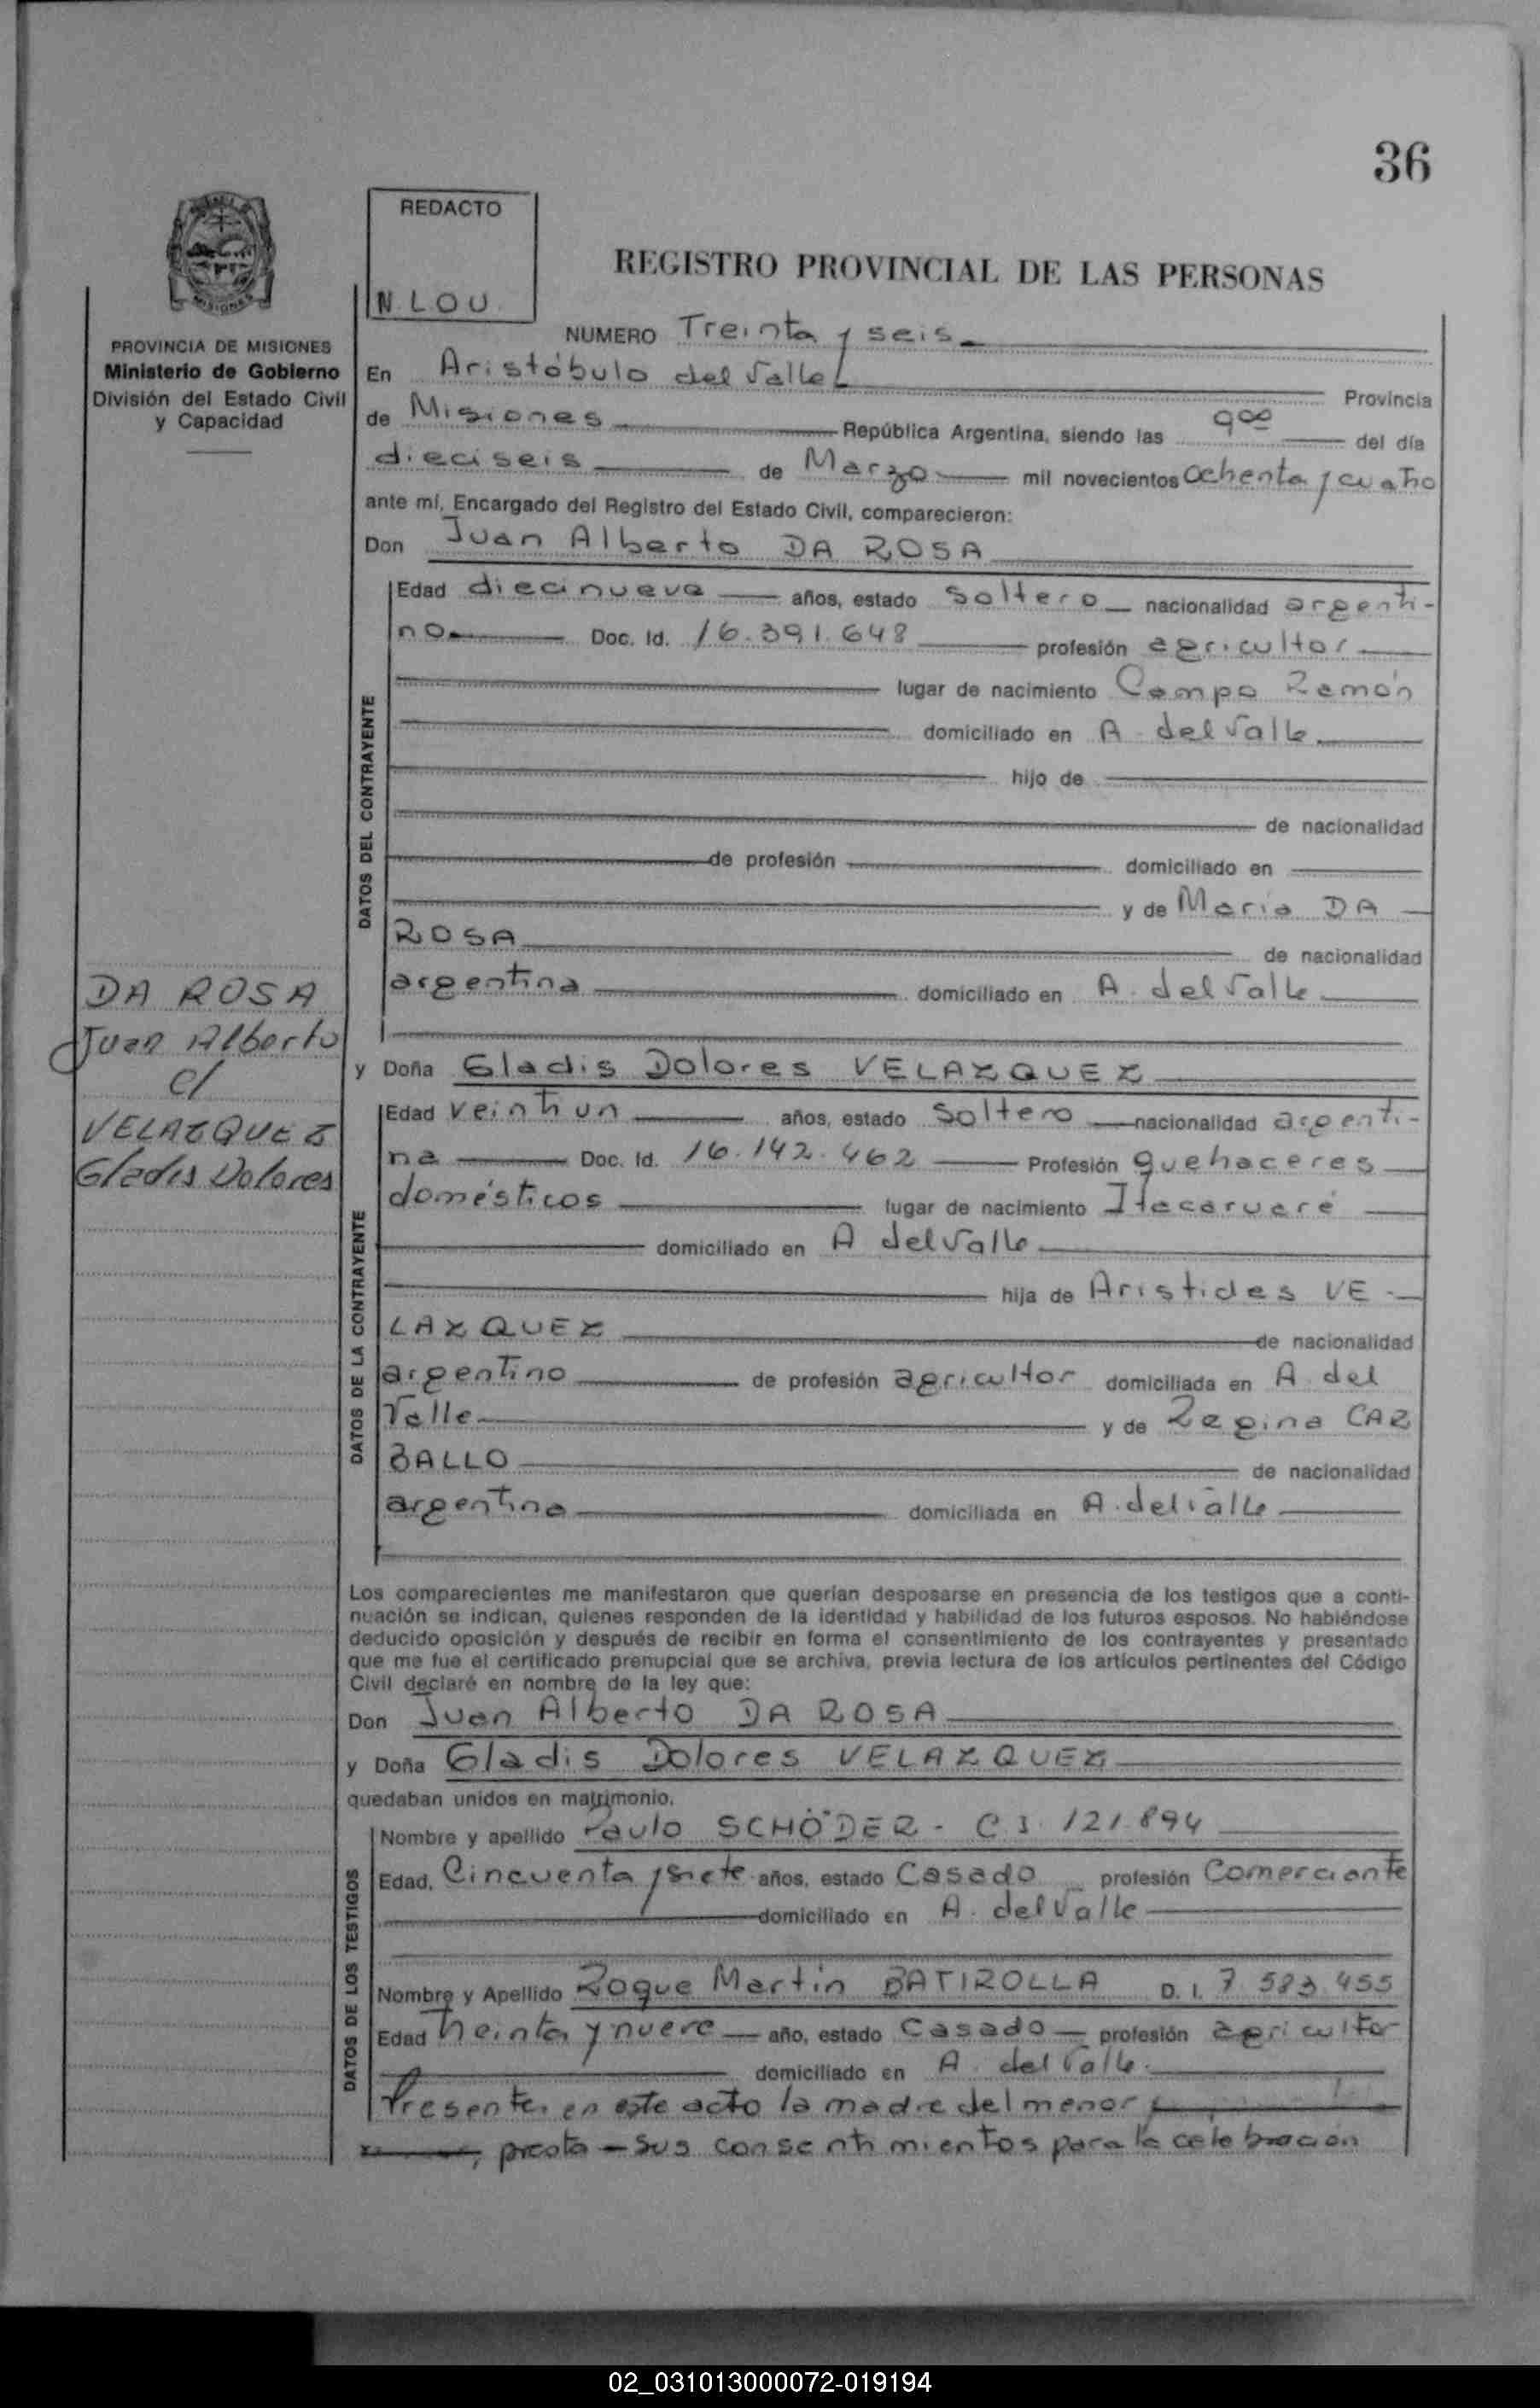 36
REDACTO
N. LOU
REGISTRO PROVINCIAL DE LAS PERSONAS
PROVINCIA DE MISIONES
Ministerio de Gobierno
División del Estado Civil
y Capacidad
NUMERO Treinta y seis
En Aristóbulo del Valle Provincia
de Misiones República Argentina, siendo las 9°° del día
dieciseis de Marzo mil novecientos ochenta y cuatro
ante mí, Encargado del Registro del Estado Civil, comparecieron:
Don Juan Alberto DA ROSA
DATOS DEL CONTRAYENTE
Edad diecinueve años, estado soltero nacionalidad argenti-
no Doc. Id. 16.391.648 profesión agricultor
lugar de nacimiento Campo Ramón
domiciliado en A. del Valle
hijo de
de nacionalidad
de profesión domiciliado en
y de Maria DA
ROSA de nacionalidad
argentina domiciliado en A. del Valle
DA ROSA
Juan Alberto
c/
VELAZQUEZ
Gladis Dolores
y Doña Gladis Dolores VELAZQUEZ
DATOS DE LA CONTRAYENTE
Edad veintiun años, estado soltero nacionalidad argenti-
na Doc. Id. 16.142.462 Profesión quehaceres
domésticos lugar de nacimiento Itacaruaré
domiciliado en A del Valle
hija de Aristides VE-
LAZQUEZ de nacionalidad
argentino de profesión agricultor domiciliada en A. del
Valle y de Regina CAR
BALLO de nacionalidad
argentina domiciliada en A. del Valle
Los comparecientes me manifestaron que querían desposarse en presencia de los testigos que a conti-
nuación se indican, quienes responden de la identidad y habilidad de los futuros esposos. No habiéndose
deducido oposición y después de recibir en forma el consentimiento de los contrayentes y presentado
que me fue el certificado prenupcial que se archiva, previa lectura de los artículos pertinentes del Código
Civil declaré en nombre de la ley que:
Don Juan Alberto DA ROSA
y Doña Gladis Dolores VELAZQUEZ
quedaban unidos en matrimonio.
DATOS DE LOS TESTIGOS
Nombre y apellido Paulo SCHÖDER - C.I. 121.894
Edad, Cincuenta y siete años, estado Casado profesión Comerciante
domiciliado en A. del Valle
Nombre y Apellido Roque Martin BATIROLLA D. I. 7.583.455
Edad treinta y nueve año, estado Casado profesión agricultor
domiciliado en A. del Valle.
Presente en este acto la madre del menor
, presta sus consentimientos para la celebración
02_031013000072-019194